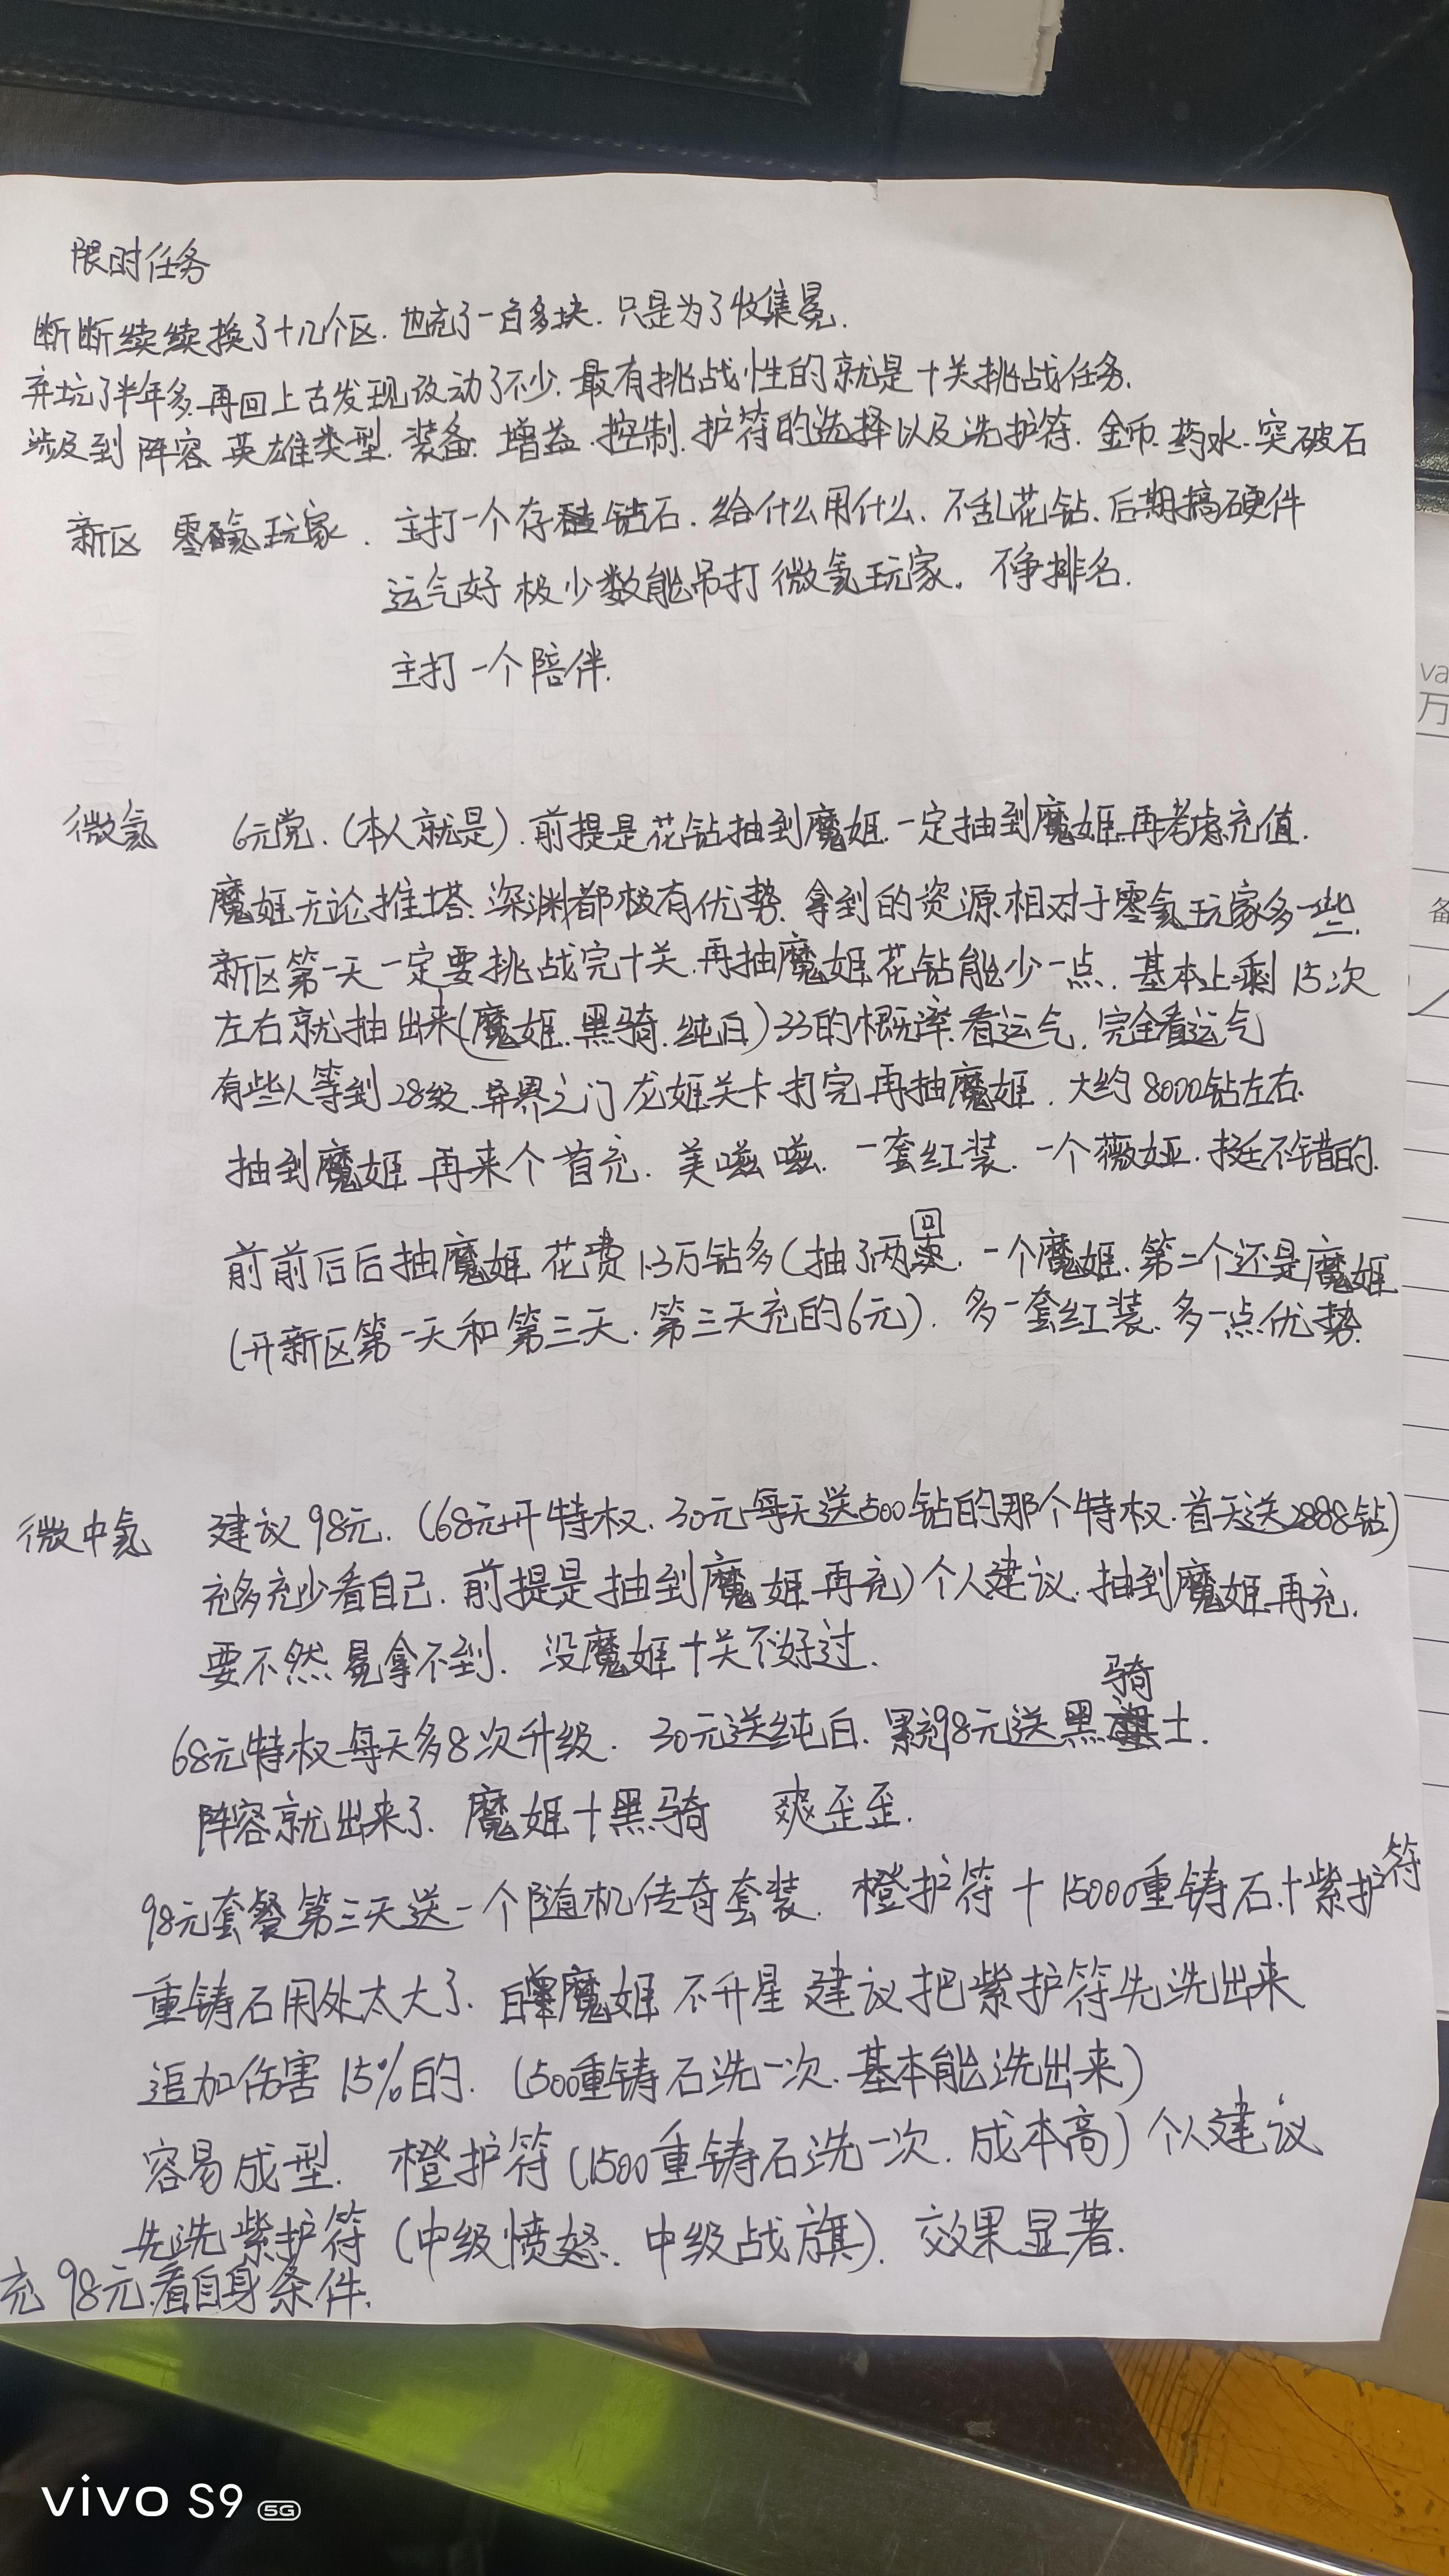 限时任务
断断续续换了十几个区.也充了一百多块.只是为了收集冕.
弃坑了半年多.再回上古发现改动了不少.最有挑战性的就是十关挑战任务.
涉及到阵容.英雄类型.装备.增益.控制.护符的选择以及洗护符.金币.药水.突破石
新区 零氪玩家. 主打一个存钻石.给什么用什么.不乱花钻.后期搞硬件
运气好极少数能吊打微氪玩家.不争排名.
主打一个陪伴.
微氪 6元党.(本人就是).前提是花钻抽到魔姬.一定抽到魔姬再考虑充值.
魔姬无论推塔.深渊都极有优势.拿到的资源相对于零氪玩家多一些.
新区第一天一定要挑战完十关.再抽魔姬花钻能少一点.基本上剩15次
左右就抽出来(魔姬.黑骑.纯白)33的概率.看运气.完全看运气
有些人等到28级.异界之门龙姬关卡打完再抽魔姬.大约8000钻左右.
抽到魔姬再来个首充.美嗞嗞.一套红装.一个薇娅.挺不错的.
前前后后抽魔姬花费1.3万钻多(抽了两回.一个魔姬.第二个还是魔姬
(开新区第一天和第三天.第三天充的6元).多一套红装.多一点优势.
微中氪 建议98元.(68元开特权.30元每天送500钻的那个特权.首天送2888钻)
充多充少看自己.前提是抽到魔姬再充)个人建议.抽到魔姬再充.
要不然冕拿不到.没魔姬十关不好过.
68元特权每天多8次升级.30元送纯白.累充98元送黑骑士.
阵容就出来了.魔姬+黑骑 爽歪歪.
98元套餐第三天送一个随机传奇套装.橙护符+15000重铸石.+紫护符
重铸石用处太大了.白魔姬不升星建议把紫护符先洗出来
追加伤害15%的.(500重铸石洗一次.基本能洗出来)
容易成型.橙护符(1500重铸石洗一次.成本高)个人建议
先洗紫护符(中级愤怒.中级战旗).效果显著.
充98元.看自身条件.
va
万
备
vivo S9 5G